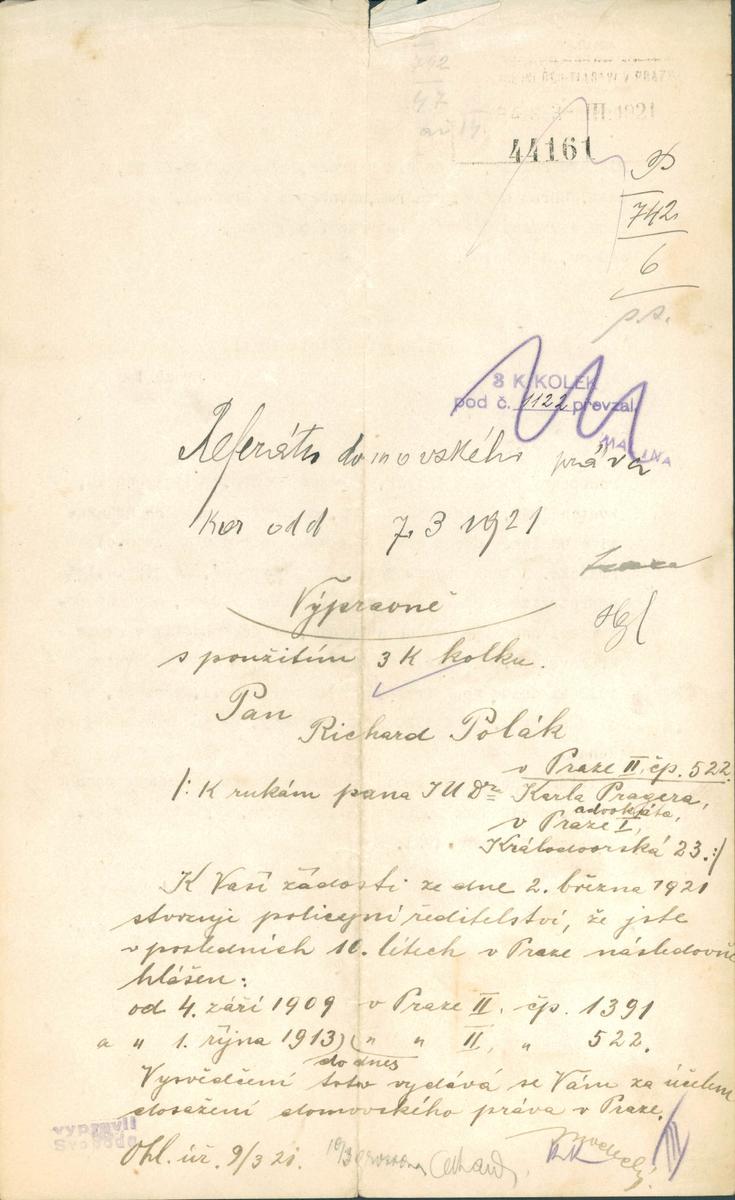 742
47
III. 1921
44161
P
742
6
p.s.
3 K KOLEK
pod č. 1122 převzal
MALINA
Referátu domovského práva
kor odd 7. 3 1921
Výpravně
s použitím 3 K kolku.
Pan
Richard Polák
v Praze II, čp. 522.
/: K rukám pana JUDra Karla Pragera,
advokáta,
v Praze I,
Královdvorská 23. :/
K Vaší žádosti ze dne 2. března 1921
stvrzuje policejní ředitelství, že jste
v posledních 10. letech v Praze následovně
hlášen:
od 4. září 1909 v Praze II. čp. 1391
a „ 1. října 1913) (" " II, „ 522.
do dnes
Vysvědčení toto vydává se Vám za účelem
dosažení domovského práva v Praze.
vypravil
Svoboda
Ohl. úř. 9/3 21. 10/3